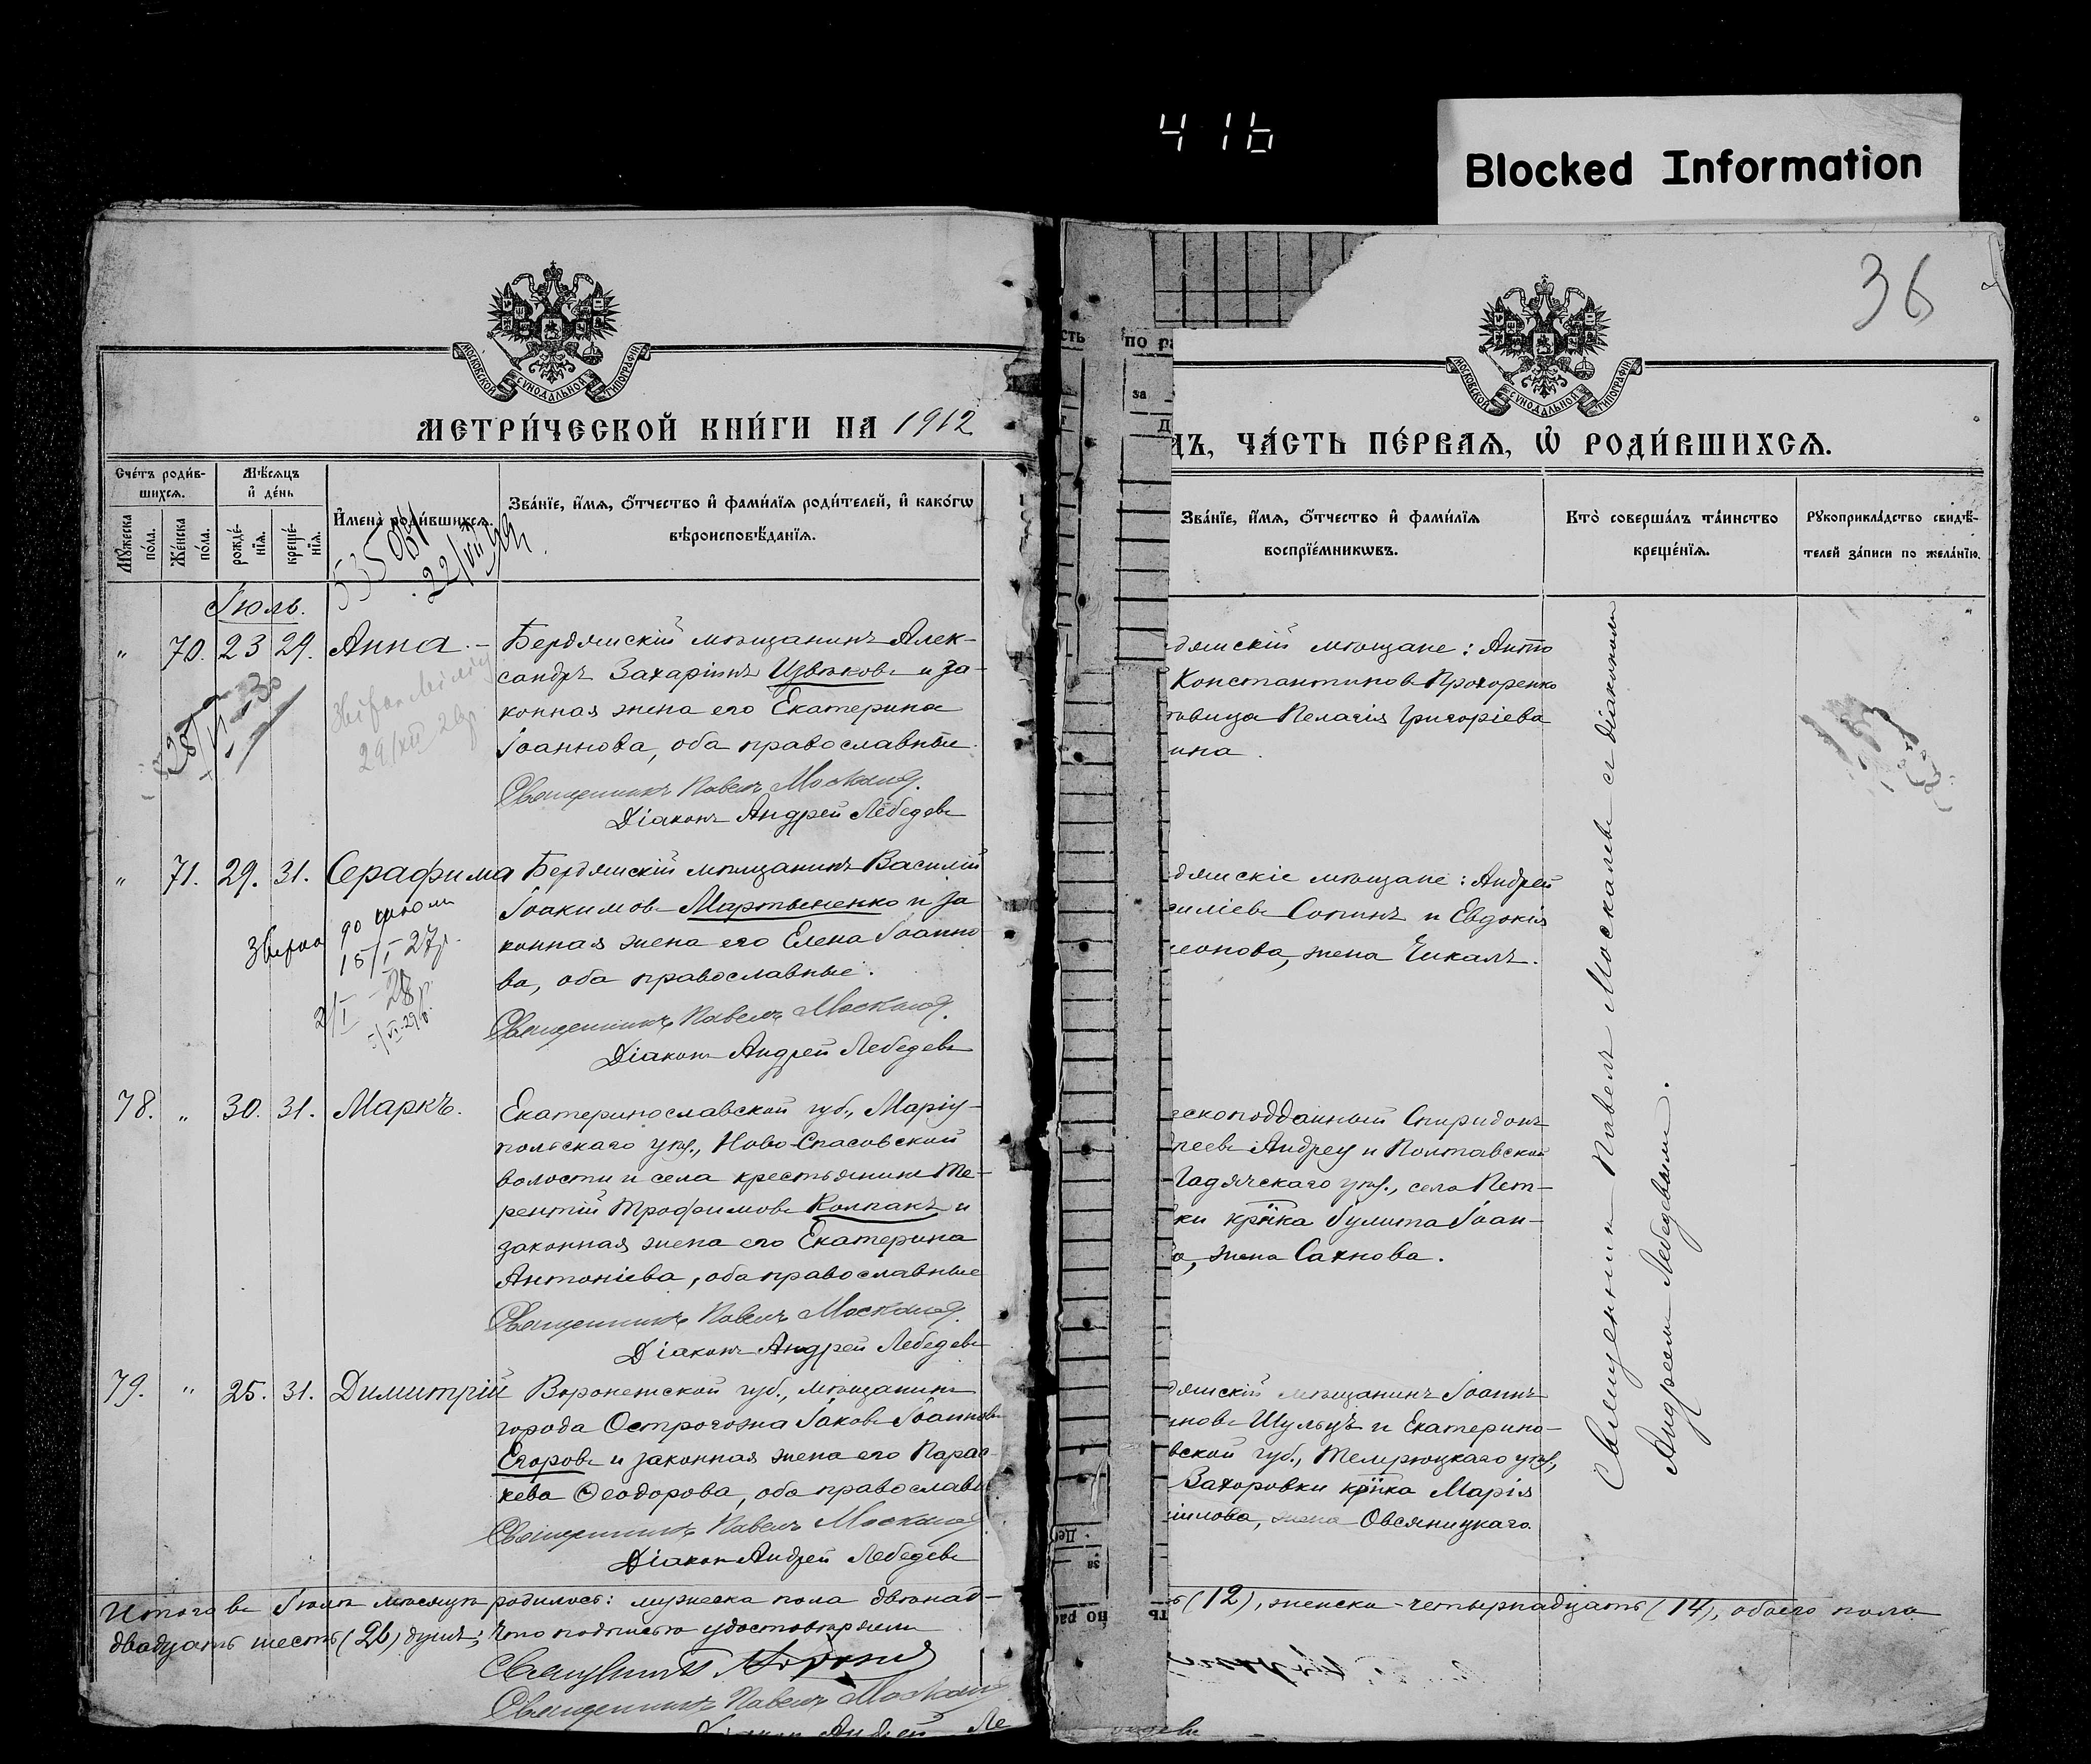 416
Blocked Information
36
МОСКОВСКОЙ СѴНОДАЛЬНОЙ ТИПОГРАФІИ
МОСКОВСКОЙ СѴНОДАЛЬНОЙ ТИПОГРАФІИ
МЕТРИ́ЧЕСКОЙ КНИ́ГИ НА 1912
ДЪ, ЧА́СТЬ ПЕ́РВАѦ, Ѡ҆ РОДИ́ВШИХСѦ.
Счéтъ роди́в-
шихсѧ.
Мꙋ́жеска по́ла.
Же́нска по́ла.
Мѣ́сѧцъ
и҆ де́нь
рожде́-нїѧ.
креще́-нїѧ.
И҆мена̀ роди́вшихсѧ.
Зва́нїе, и҆́мѧ, ѻ҆́тчество и҆ фами́лїѧ роди́телей, и҆ како́гѡ
вѣроисповѣ́данїѧ.
Зва́нїе, и҆́мѧ, ѻ҆́тчество и҆ фами́лїѧ
воспрїе́мникѡвъ.
Кто̀ соверша́лъ та́инство
креще́нїѧ.
Рꙋкоприкла́дство свидѣ́-
телей за́писи по жела́нїю.
Іюль.
" 70. 23 29. Анна. Бердянскій мѣщанинъ Алек-
сандръ Захаріинъ Цѣвковъ и за-
конная жена его Екатерина
Іоаннова, оба православные.
Священникъ Павелъ Москалев.
Діаконъ Андрей Лебедевъ
дянскій мѣщане: Анто
Константиновъ Прохоренко
Пелагія Григоріева
ина.
" 71. 29. 31. Серафима Бердянскій мѣщанинъ Василій
Іоакимовъ Мартыненко и за
конная жена его Елена Іоанно
ва, оба православные.
Священникъ Павелъ Москалев.
Діаконъ Андрей Лебедевъ
15/I 27р.
дянскіе мѣщане: Андрей
силіевъ Сопинъ и Евдокія
леонова, жена Чикалъ.
78. " 30. 31. Маркъ. Екатеринославской губ., Маріу-
польскаго уѣз., Ново-Спасовской
волости и села крестьянинъ Те-
рентій Трофимовъ Колпакъ и
законная жена его Екатерина
Антоніева, оба православные
Священникъ Павелъ Москалев.
Діаконъ Андрей Лебедевъ
ескоподданный Спиридонъ
Андреу и Полтавской
Гадячскаго уѣз., села Пет-
ки кр҃нка Іулита Іоан-
а, жена Сахнова.
79. " 25. 31. Димитрій Воронежской губ., мѣщанинъ
города Острогожска Іаковъ Іоанновъ
Егоровъ и законная жена его Парас-
кева Ѳеодорова, оба православн
Священникъ Павелъ Москалев
Діаконъ Андрей Лебедевъ
дянскій мѣщанинъ Іоаннъ
новъ Шульцъ и Екатерино-
вской губ., Темрюцкаго уѣз,
Захоровки кр҃нка Марія
жена Овсяницкаго.
Священникъ Павелъ Москалевъ съ діакономъ
Андреемъ Лебедевымъ.
Итого въ Іюлѣ мѣсяцѣ родилось: мужеска пола двѣнад-
ть (12), женска - четырнадцать (14), обоего пола
двадцать шесть (26) душъ; что подписью удостовѣряемъ
Священникъ
Священникъ Павелъ Москалев
Діаконъ Андрей Ле
бедевъ